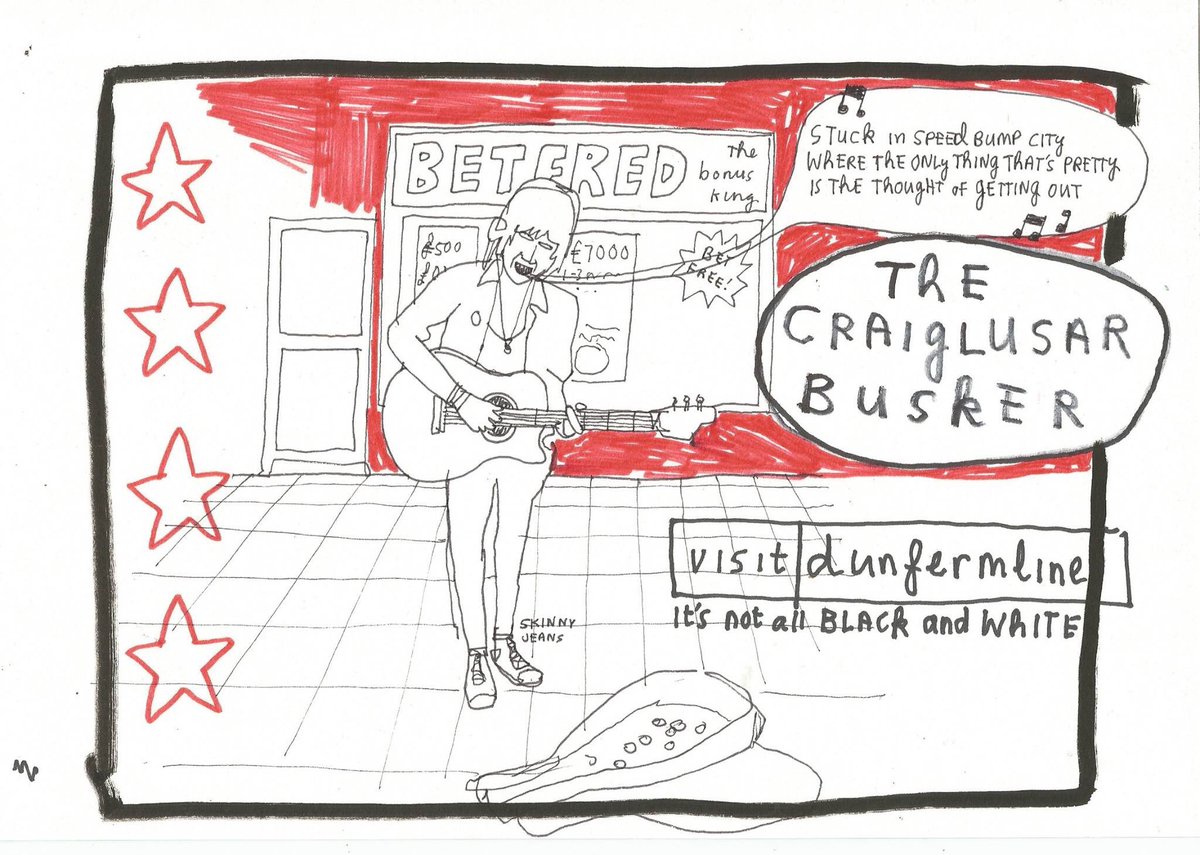 BETFRED
the
bonus
king
STUCK in SPEED BUMP CITY
WHERE THE ONLY THING THAT'S PRETTY
IS THE THOUGHT OF GETTING OUT
£500
£7000
BET
FREE!
THE
CRAIGLUSAR
BUSKER
visit dunfermline
it's not all BLACK and WHITE
SKINNY
JEANS